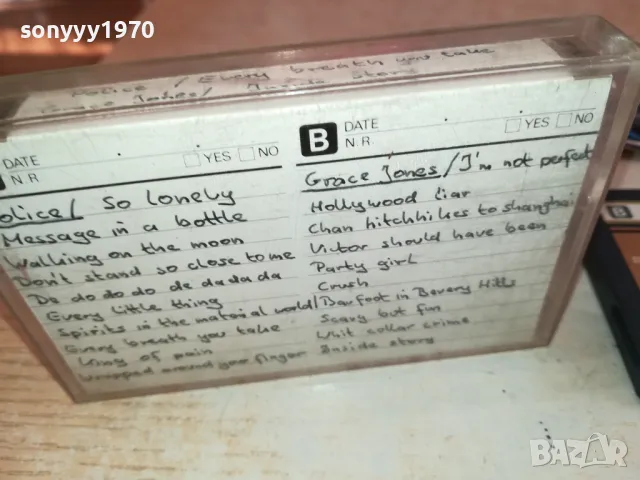 sonyyy1970
Police / Every breath you take
Grace Jones / Inside Story
DATE
N.R
YES NO
B
DATE
N.R.
YES NO
olice/ So lonely
Message in a bottle
Walking on the moon
Don't stand so close to me
De do do do de da da da
Every little thing
Spirits in the material world/
Every breath you take
King of pain
Wrapped around your finger
Grace Jones/I'm not perfect
Hollywood liar
Chan hitchhikes to shanghai
Victor should have been
Party girl
Crush
Barfoot in Bevery Hills
Scary but fun
Whit collar crime
Inside story
BAZAR
bg